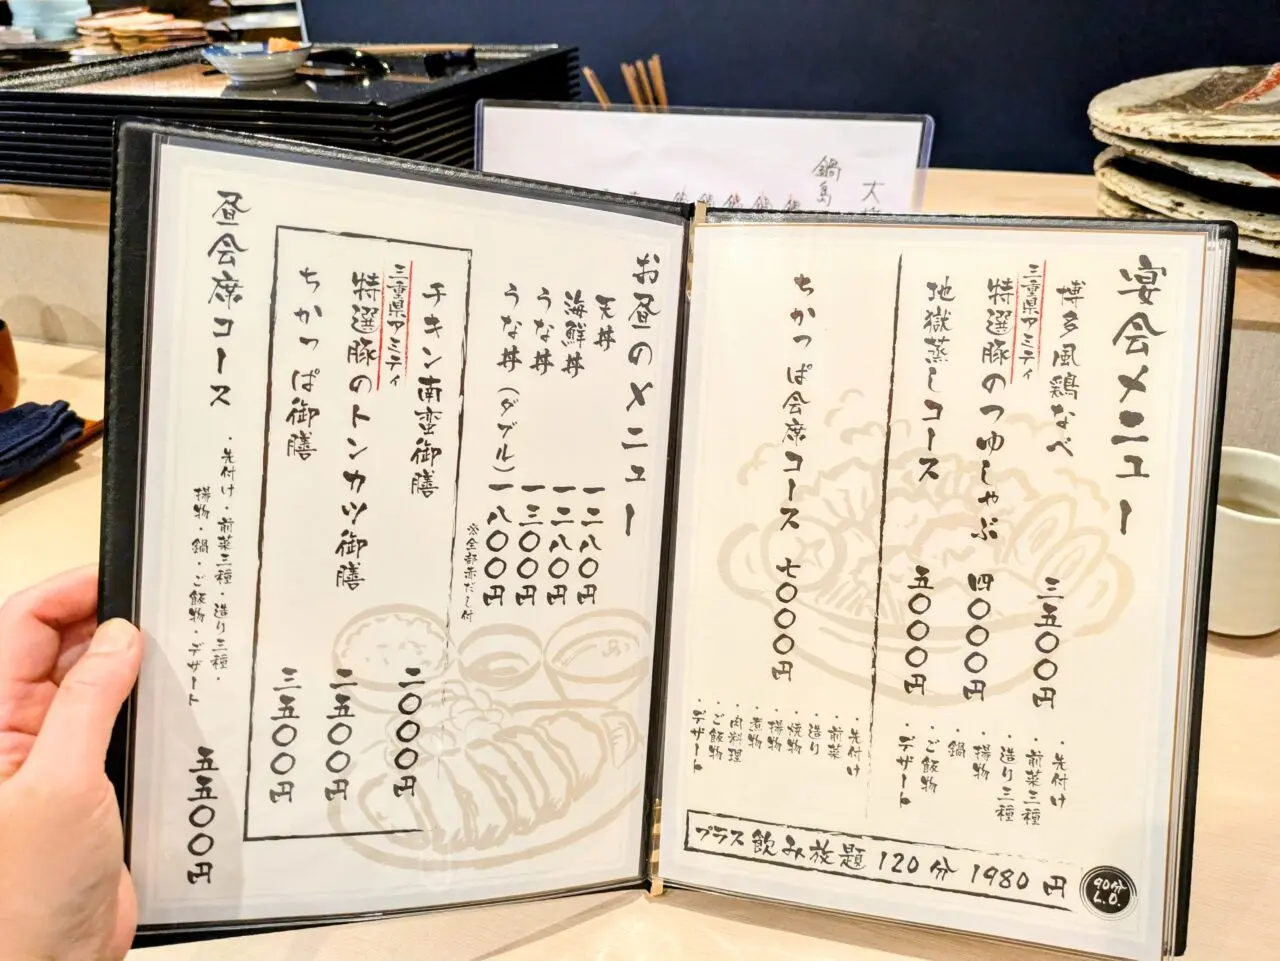 宴会メニュー
博多風鶏なべ 三五〇〇円
三重県アミティ
特選豚のつゆしゃぶ 四〇〇〇円
地獄蒸しコース 五〇〇〇円
・先付け
・前菜三種
・造り三種
・揚物
・鍋
・ご飯物
・デザート
ちかっぱ会席コース 七〇〇〇円
・先付け
・前菜
・造り
・焼物
・揚物
・煮物
・肉料理
・ご飯物
・デザート
プラス飲み放題 120分 1980円
90分
L.O.
お昼のメニュー
天丼 一二八〇円
海鮮丼 一二八〇円
うな丼 一三〇〇円
うな丼(ダブル) 一八〇〇円
※全部赤だし付
チキン南蛮御膳 二〇〇〇円
三重県アミティ
特選豚のトンカツ御膳 二五〇〇円
ちかっぱ御膳 三五〇〇円
昼会席コース 五五〇〇円
・先付け・前菜三種・造り三種・
揚物・鍋・ご飯物・デザート
鍋島